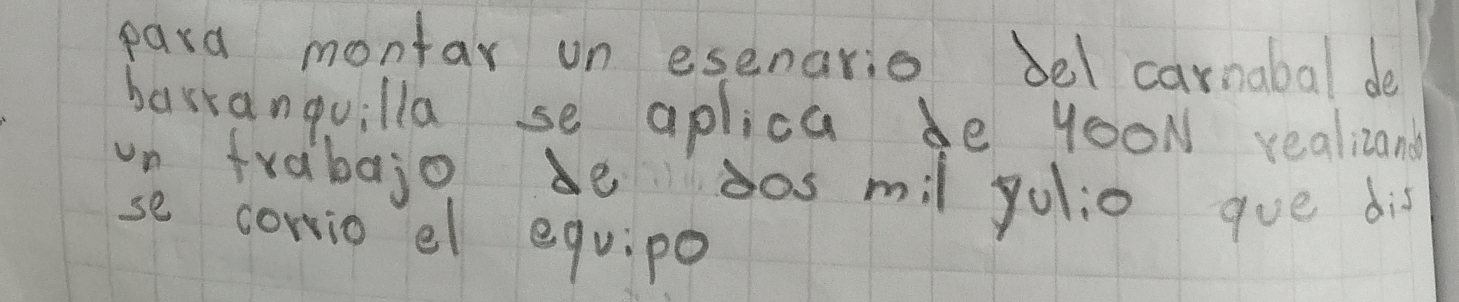 para montar un esenario del carnabal de
barranquilla se aplica de 400N realizando
un trabajo de dos mil yulio que dis
se corrio el equipo